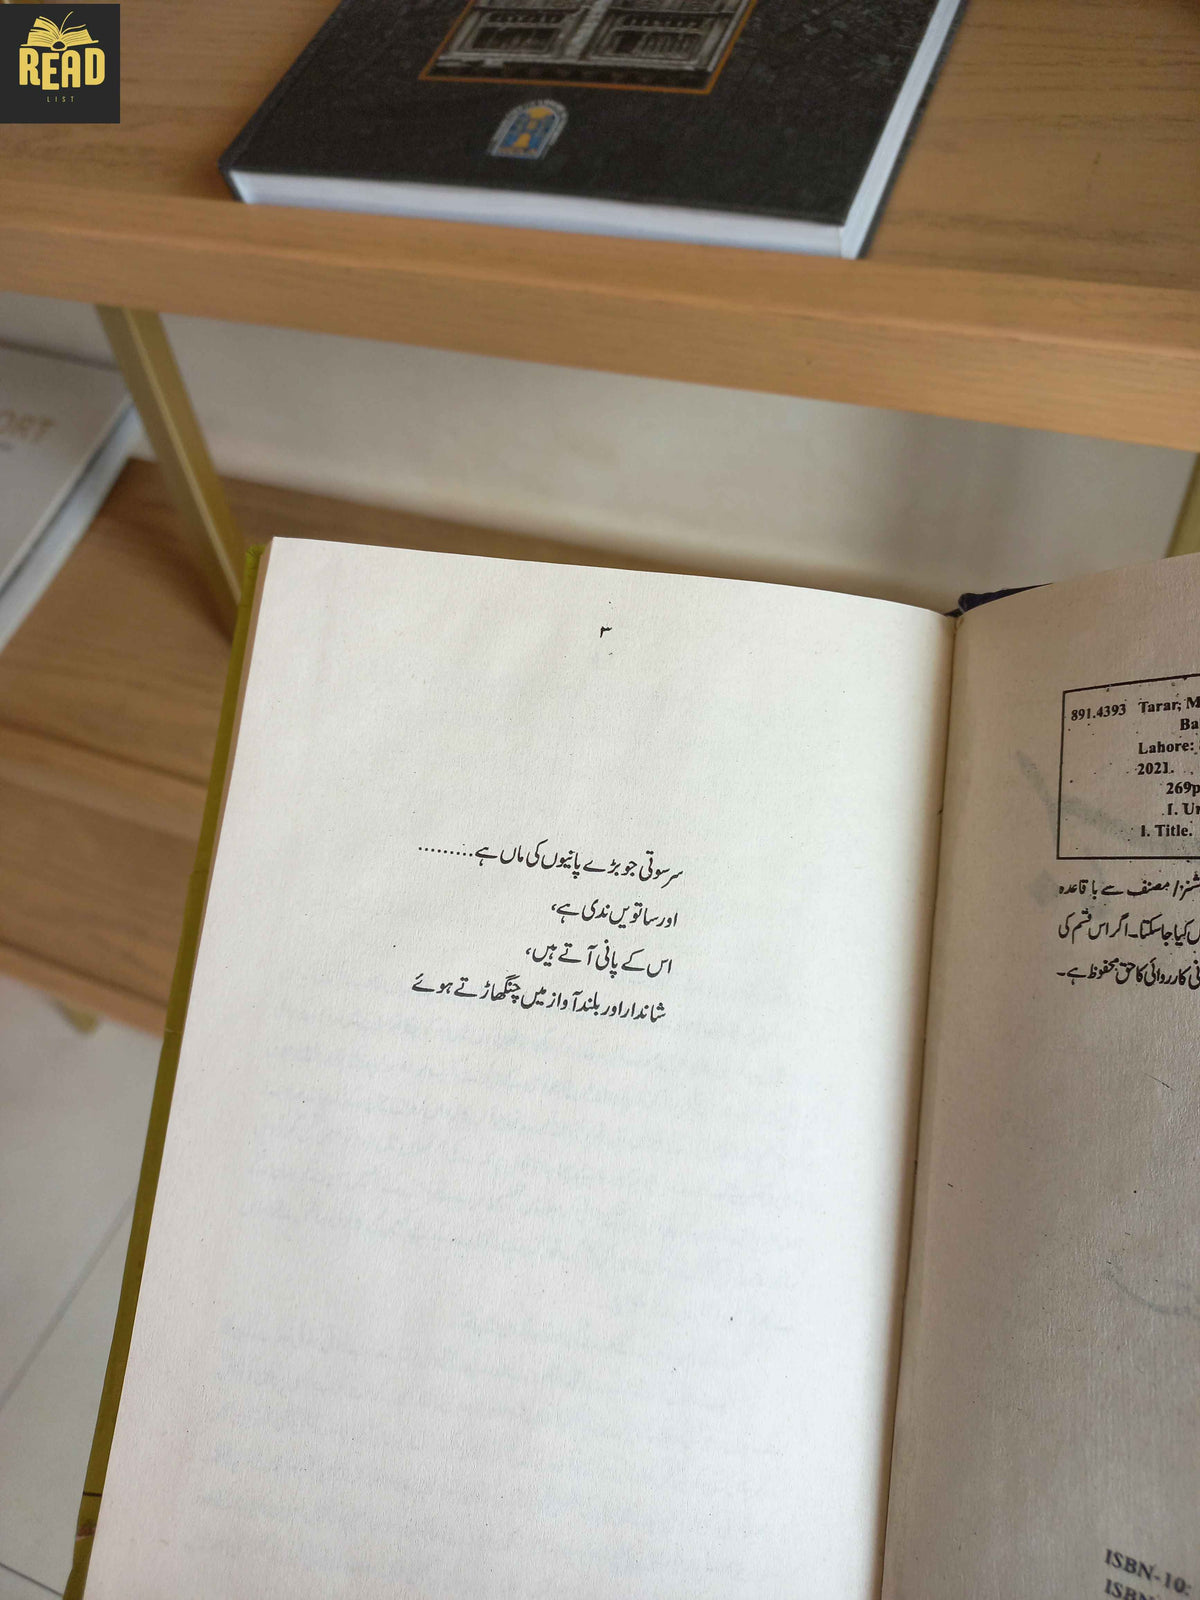 READ
LIST
ORT
۳
سرسوتی جو بڑے پانیوں کی ماں ہے.........
اور ساتویں ندی ہے،
اس کے پانی آتے ہیں،
شاندار اور بلند آواز میں چنگھاڑتے ہوئے
891.4393 Tarar, M
Ba
Lahore:
2021.
269p
I. Ur
I. Title.
مصنف سے باقاعدہ
کیا جا سکتا۔ اگر اس قسم کی
کارروائی کا حق محفوظ ہے۔
ISBN-10:
ISBN